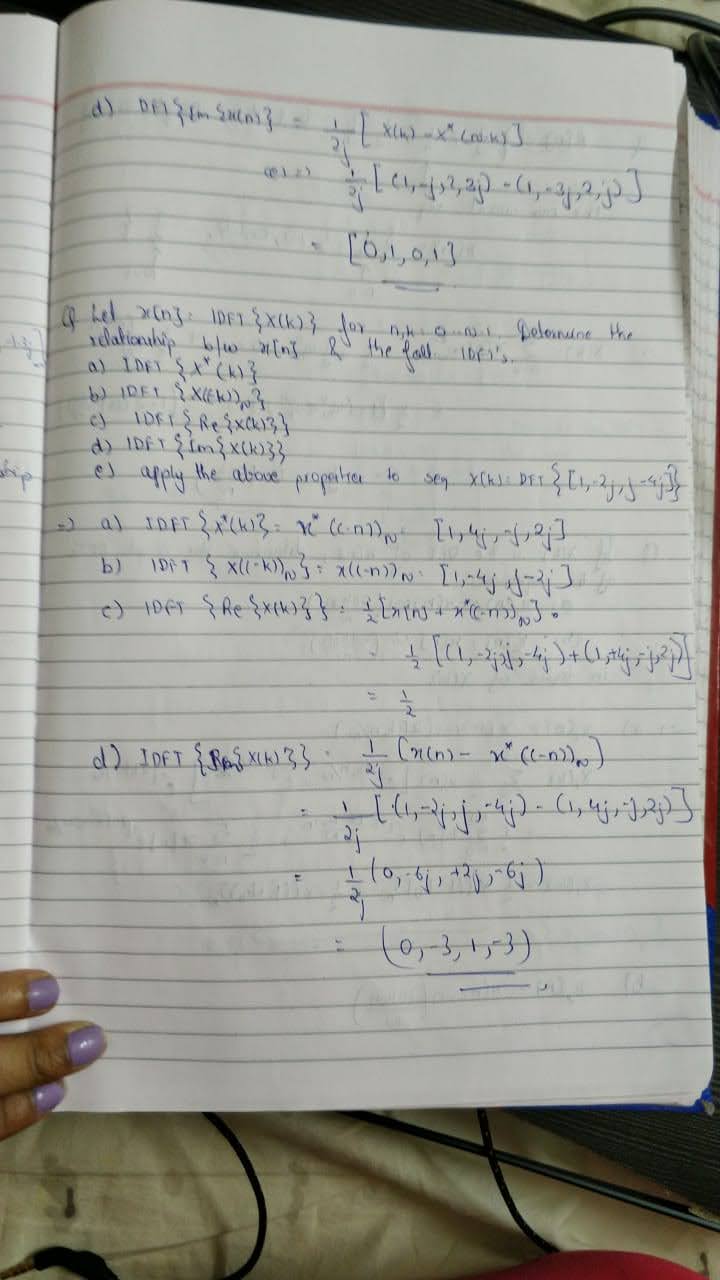 d) DFT{Im{x(n)} = 1/2j [X(k) - X*(N-k)]
(e) => 1/2j [(1,-j,2,2j) - (1,-2j,2,j)]
= [0,1,0,1]
Q Let x[n] = IDFT{X(k)} for n,k = 0 Determine the
relationship b/w x[n] & the foll IDFT's.
a) IDFT {X*(k)}
b) IDFT {X((-k))N}
c) IDFT {Re{X(k)}}
d) IDFT {Im{X(k)}}
e) apply the above properties to seq X(k) = DFT{[1,-2j,j-4j]}
=> a) IDFT {X*(k)} = x*((-n))N = [1,4j,-j,2j]
b) IDFT {X((-k))N} = x((-n))N = [1,-4j,j-2j]
c) IDFT {Re{X(k)}} = 1/2 [x[n] + x*((-n))N] .
= 1/2 [(1,-2j,j,-4j) + (1,+4j,-j,2j)]
= 1/2
d) IDFT { {X(k)}} = 1/2j [x(n) - x*((-n))N]
= 1/2j [(1,-2j,j,-4j) - (1,4j,-j,2j)]
= 1/2j (0,-6j,+2j,-6j)
= (0,-3,1,-3)